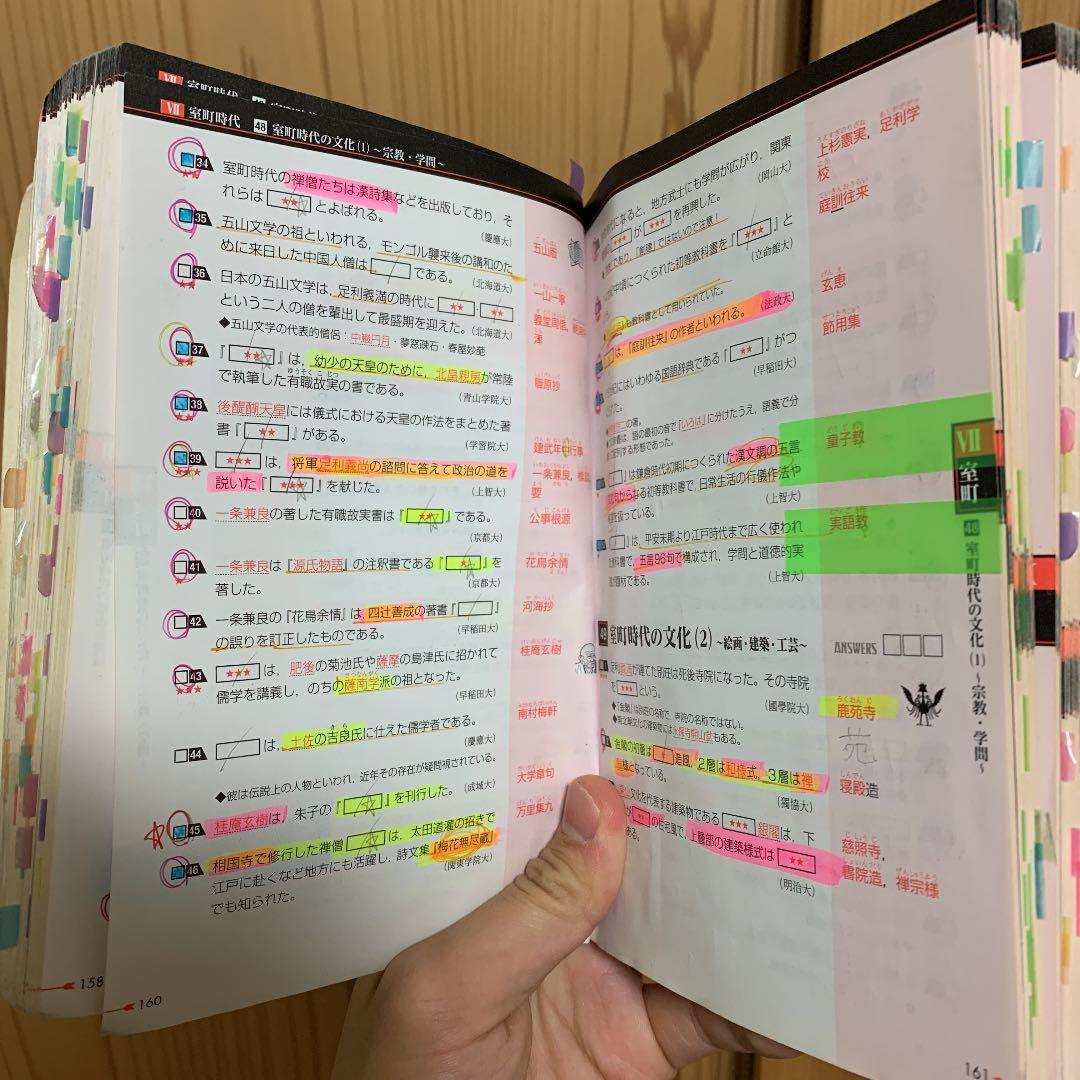 VII 室町時代 48 室町時代の文化(1)~宗教・学問~
34 室町時代の禅僧たちは漢詩集などを出版しており，そ
れらは ★★ とよばれる。 (慶應大)
五山版
35 五山文学の祖といわれる，モンゴル襲来後の講和のた
めに来日した中国人僧は である。 (北海道大)
一山一寧
36 日本の五山文学は，足利義満の時代に ★★ ・ ★★
という二人の僧を輩出して最盛期を迎えた。(北海道大)
◆五山文学の代表的僧侶：中巌円月・夢窓疎石・春屋妙葩
37 『 ★★ 』は，幼少の天皇のために，北畠親房が常陸
で執筆した有職故実の書である。 (青山学院大)
職原抄
38 後醍醐天皇には儀式における天皇の作法をまとめた著
書『 ★★ 』がある。 (学習院大)
建武年中行事
39 ★★★ は，将軍足利義尚の諮問に答えて政治の道を
説いた『 ★★★ 』を献じた。 (上智大)
一条兼良，樵談治
要
40 一条兼良の著した有職故実書は『 ★★ 』である。
(京都大)
公事根源
41 一条兼良は『源氏物語』の注釈書である『 ★ 』を
著した。 (京都大)
花鳥余情
42 一条兼良の『花鳥余情』は，四辻善成の著書『 』
の誤りを訂正したものである。 (早稲田大)
河海抄
43 ★★★ は，肥後の菊池氏や薩摩の島津氏に招かれて
儒学を講義し，のちの薩南学派の祖となった。
(早稲田大)
桂庵玄樹
44 は，土佐の吉良氏に仕えた儒学者である。
(慶應大)
南村梅軒
◆彼は伝説上の人物といわれ，近年その存在が疑問視されている。
45 桂庵玄樹は，朱子の『 』を刊行した。 (成城大)
大学章句
46 相国寺で修行した禅僧 は，太田道灌の招きで
江戸に赴くなど地方にも活躍し，詩文集『梅花無尽蔵』
でも知られた。 (関東学院大)
万里集九
158
160
になると，地方武士にも学問が広がり，関東
★★★ が ★★★ を再興した。 (岡山大)
であり，「創建」ではないので注意！
上杉憲実，足利学
校
中頃につくられた初等教科書を『 ★★★ 』と
(立命館大)
庭訓往来
も教科書として用いられていた。
は，『庭訓往来』の作者といわれる。 (法政大)
玄恵
にはいわゆる国語辞典である『 ★★ 』がつ
(早稲田大)
節用集
の著。
は，語の最初の音で「いろは」に分けたうえ，語義で分
する形態であった。
』は鎌倉時代初期につくられた漢文調の五言
からなる初等教科書で，日常生活の行儀作法や
を扱っている。 (上智大)
童子教
』は，平安末期より江戸時代まで広く使われ
教科書で，五言96句で構成され，学問と道徳的実
題材である。 (上智大)
実語教
49 室町時代の文化(2)~絵画・建築・工芸~
ANSWERS
足利義満が建てた別荘は死後寺院になった。その寺院
を ★★★ という。 (國學院大)
◆「金閣」は別荘の名称で，寺院の名称ではない。
◆北山文化の建築物には永保寺開山堂もある。
鹿苑寺
苑
金閣の初層は 造風，2層は和様式，3層は禅
となっている。 (獨協大)
寝殿造
文化を代表する建築物である ★★★ 銀閣は，下
★★ の住宅風で，上層部の建築様式は ★★
ある。 (明治大)
慈照寺，
書院造，禅宗様
VII 室町
48 室町時代の文化(1)~宗教・学問~
161